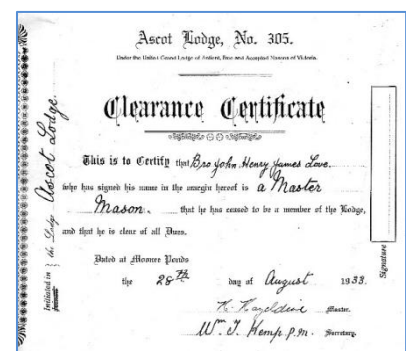 Ascot Lodge, No. 305.
Under the United Grand Lodge of Antient, Free and Accepted Masons of Victoria.
Clearance Certificate
This is to Certify that Bro John Henry James Love
who has signed his name in the margin hereof is a Master
Mason. that he has ceased to be a member of the Lodge,
and that he is clear of all Dues.
Dated at Moonee Ponds
the 28th day of August 1933.
K. Hazeldine Master.
Wm. J. Kemp P.M. Secretary.
Initiated in the Lodge Ascot Lodge.
Signature